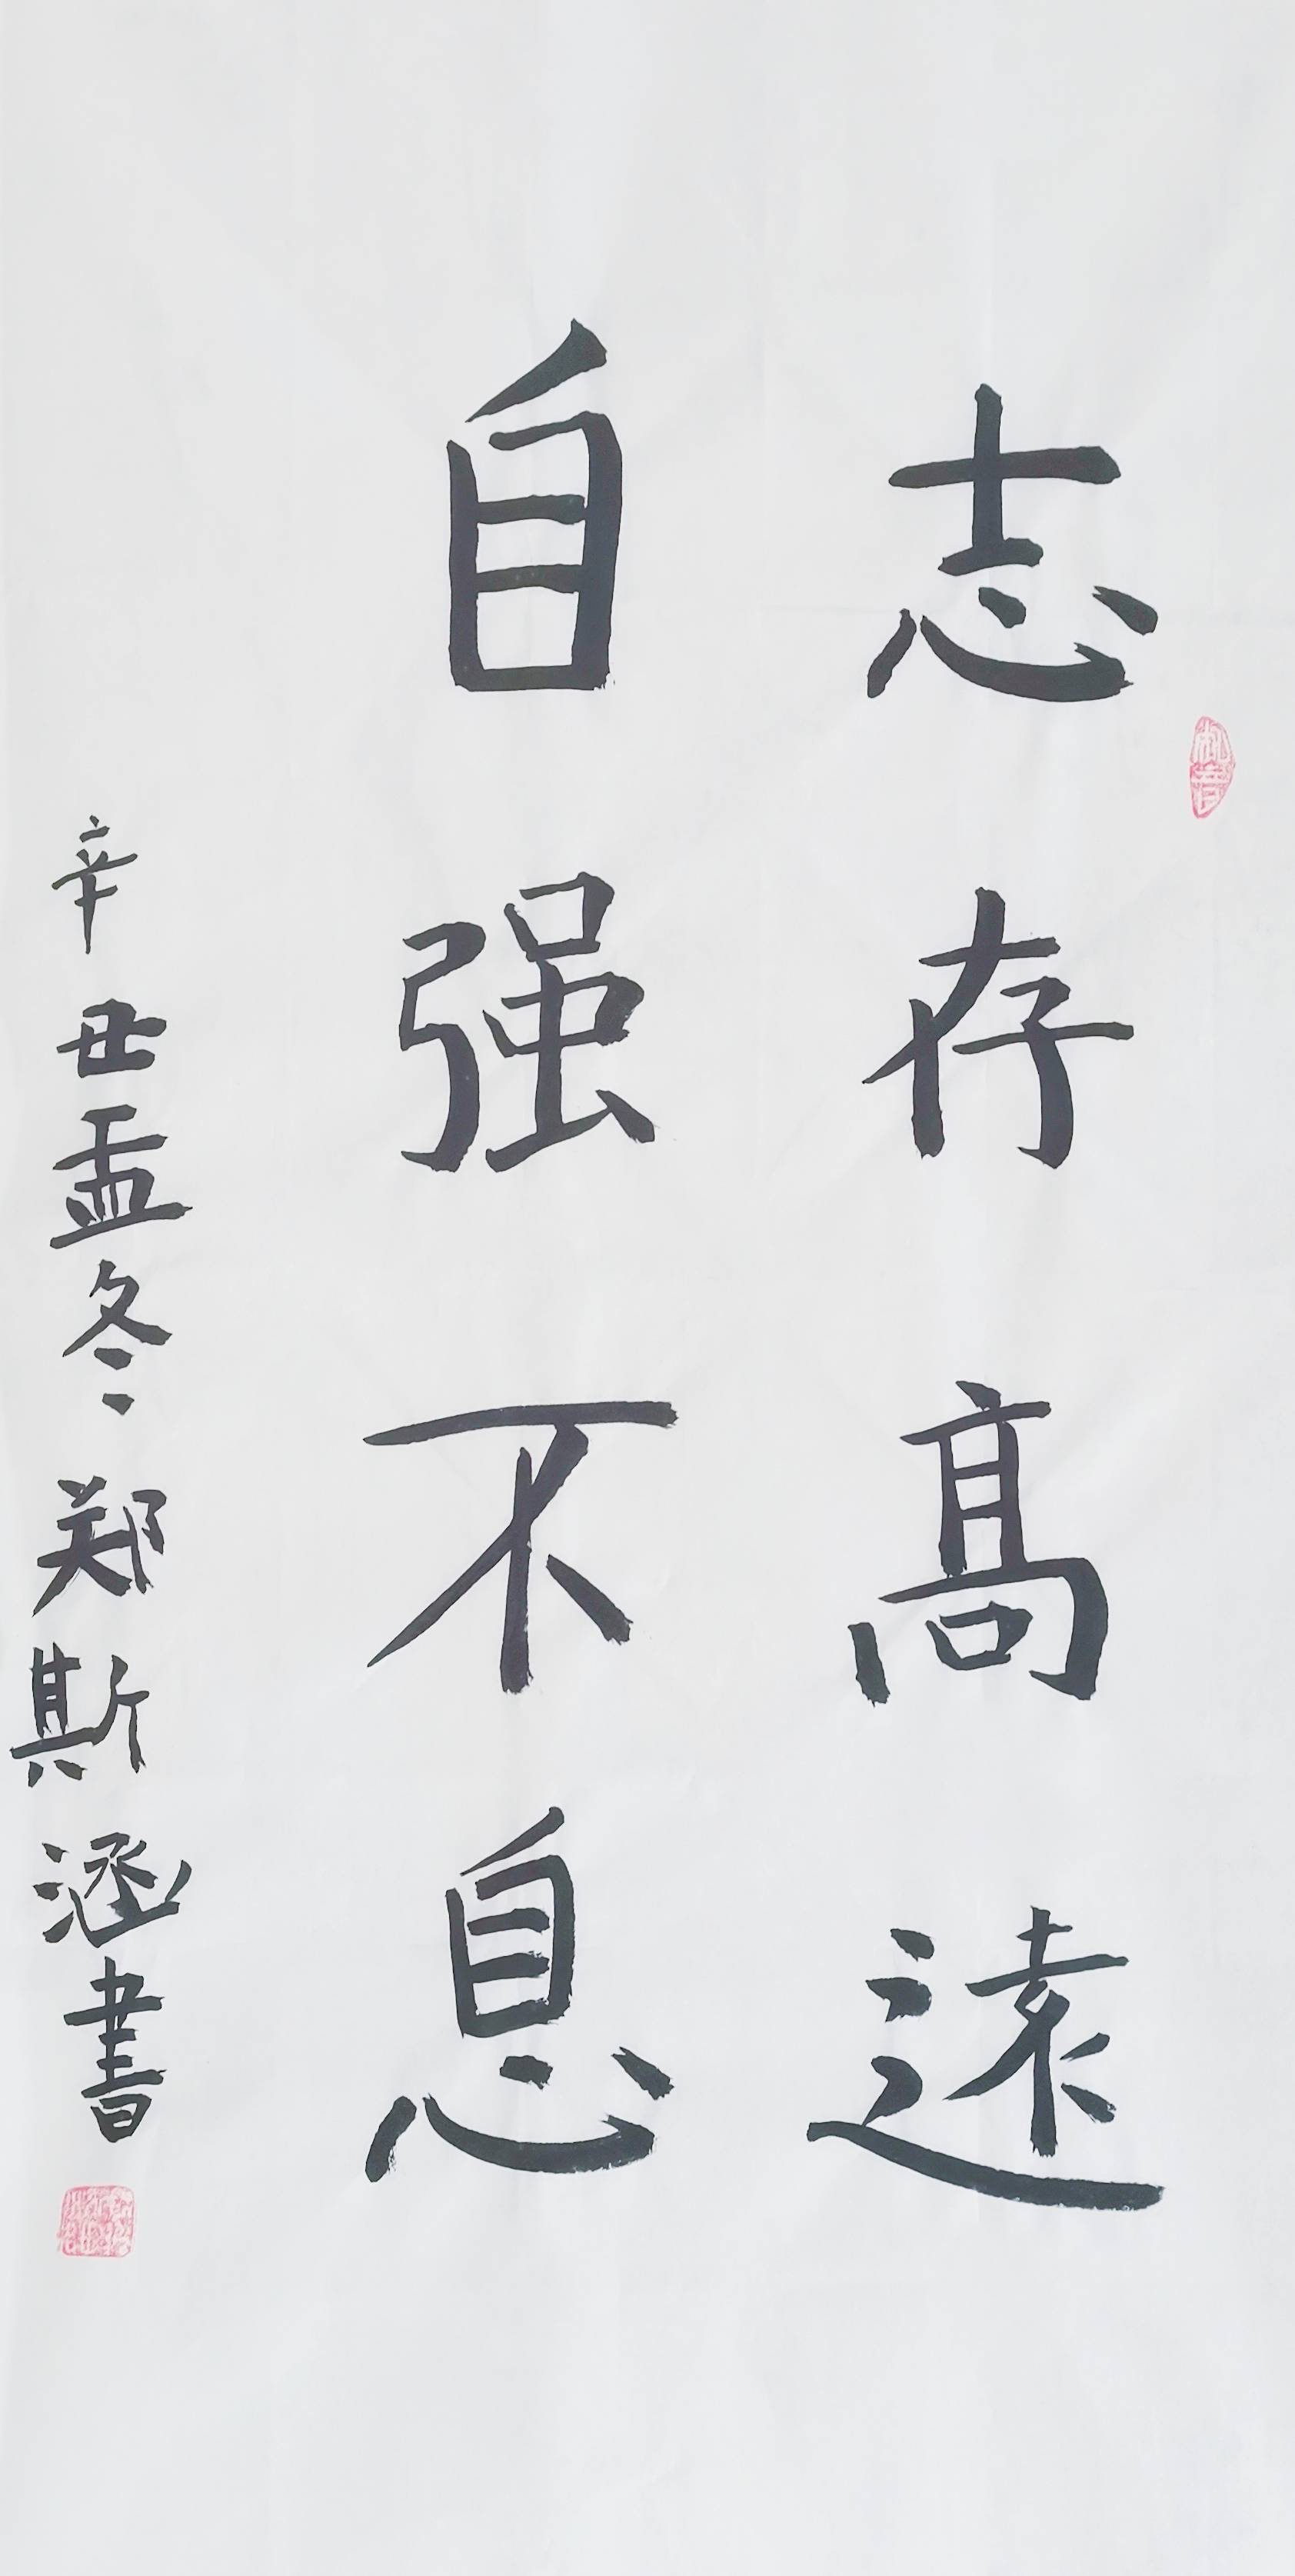 志存高遠
自强不息
辛丑孟冬郑斯涵書